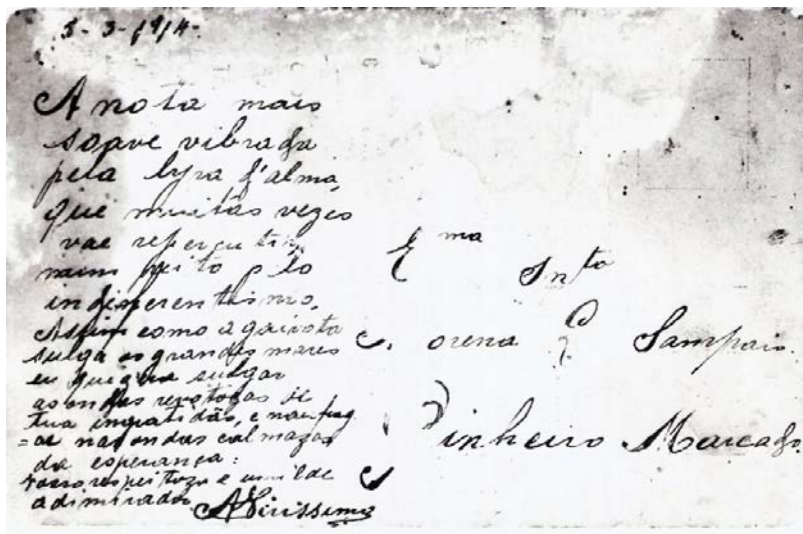 5-3-1914.
A nota mais
soave vibrada
pela lyra d'alma,
que muitas vezes
vae repercutir
num peito
indiferentismo.
Assim como a gaivota
sulga os grandes mares
eu quizera sulgar
as ondas revoltozas de
tua ingratidão, e naufrag
=ar nas ondas calmazas
da esperança:
respeitozo e umilde
adimirador
Ema
Snta
orena Sampaio.
inheiro Marcado.